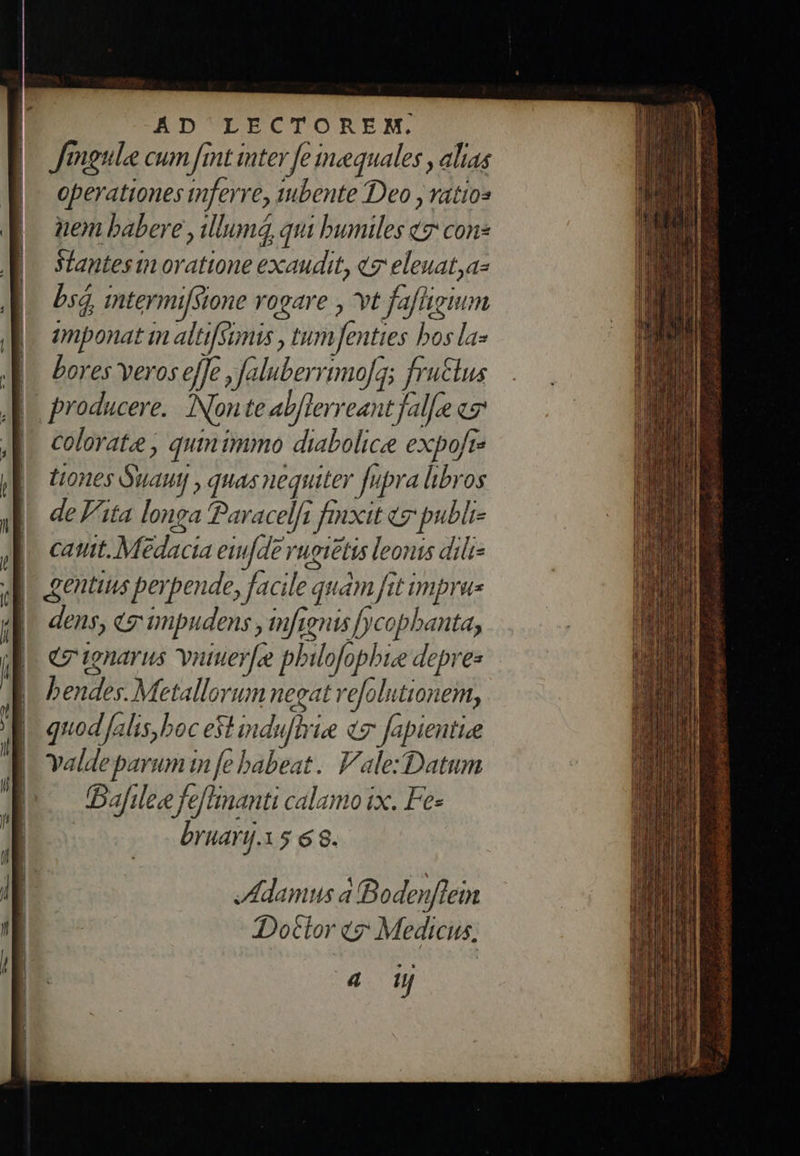 AD LECTOREM.
ſingulæ cum ſint inter ſe inæquales, alias
operationes inferre, iubente Deo, ratio=
nem habere, illumq́, qui humiles & con=
ſtantes in oratione exaudit, & eleuat, a=
bsq́, intermiſsione rogare, vt faſtigium
imponat in altiſsimis, tum ſenties hos la=
bores veros eſſe, ſaluberrimoſq; fructus
producere. Non te abſterreant falſæ &
coloratæ, quinimmo diabolicæ expoſi=
tiones Suauij, quas nequiter ſupra libros
de Vita longa Paracelſi finxit & publi=
cauit. Mẽdacia eiuſdẽ rugiẽtis leonis dili=
gentius perpende, facile quàm ſit impru=
dens, & impudens, inſignis ſycophanta,
& ignarus vniuerſæ philoſophiæ depre=
hendes. Metallorum negat reſolutionem,
quod ſalis, hoc eſt induſtriæ & ſapientiæ
valde parum in ſe habeat. Vale: Datum
Baſileæ feſtinanti calamo ix. Fe=
bruarij. 1568.
Adamus à Bodenſtein
Doctor & Medicus.
a iij